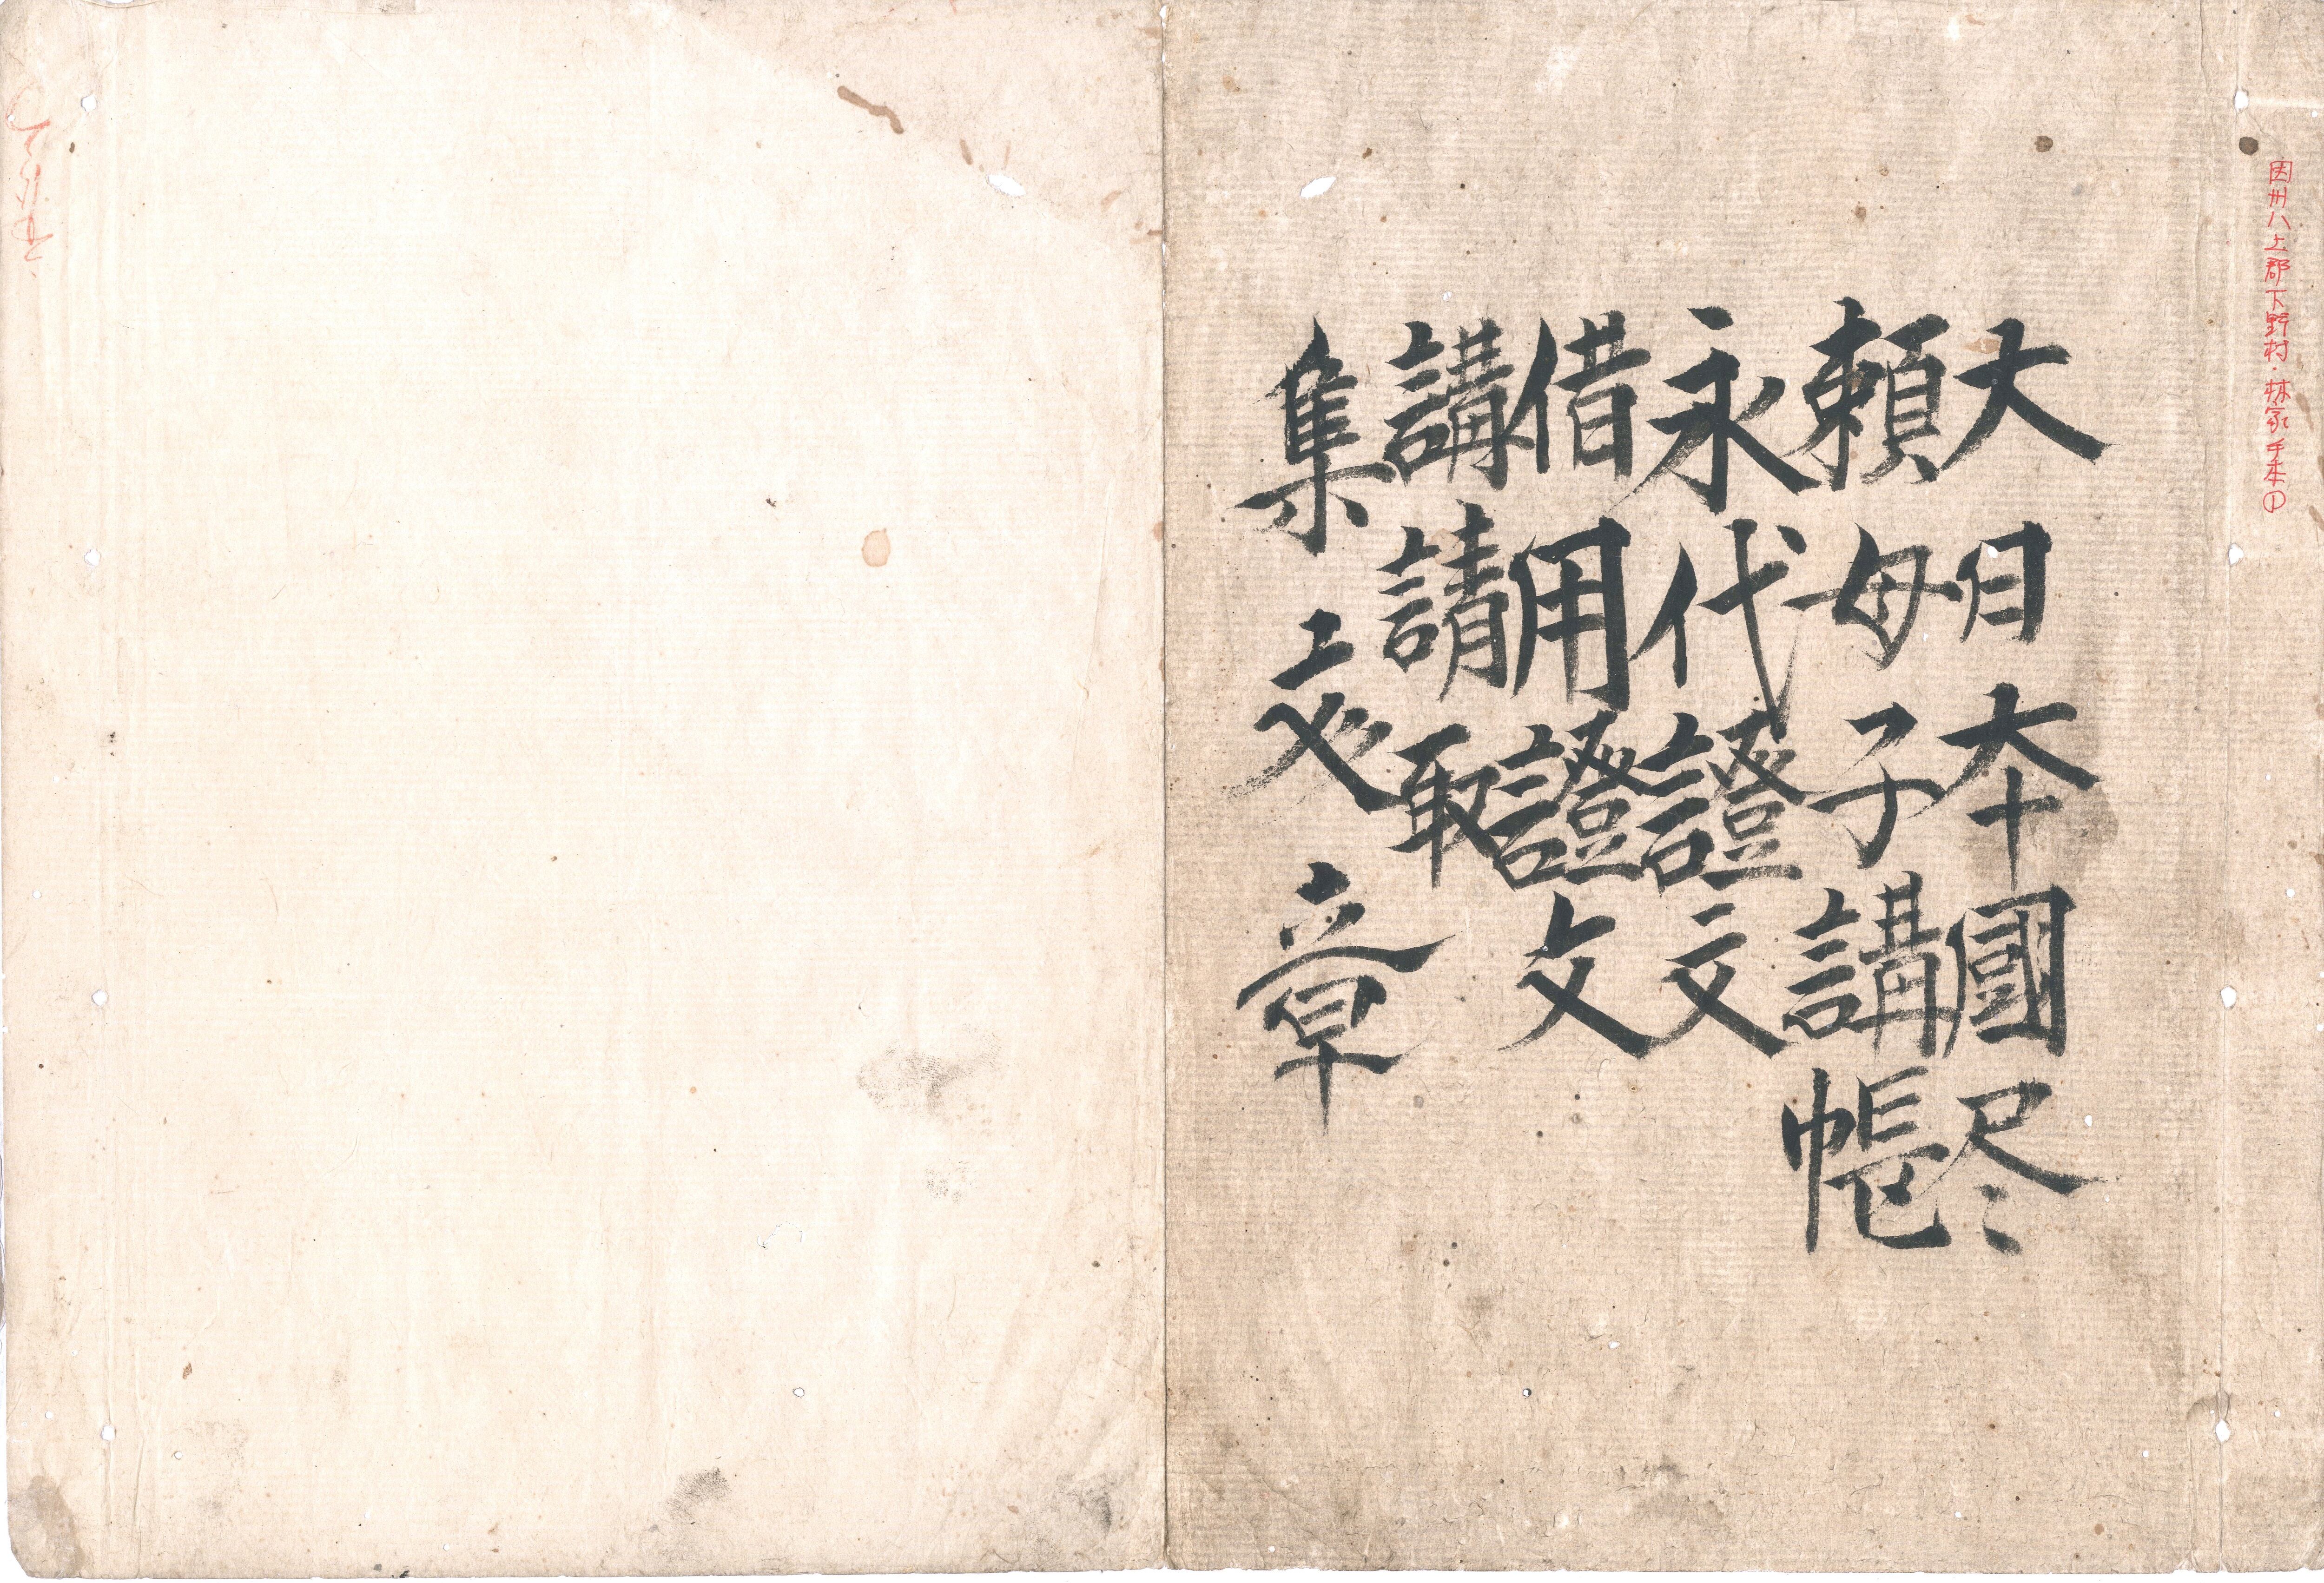 因州八上郡下野村・林家手本①
大日本國尽
頼母子講帳
永代證文
借用證文
講請取
集 章